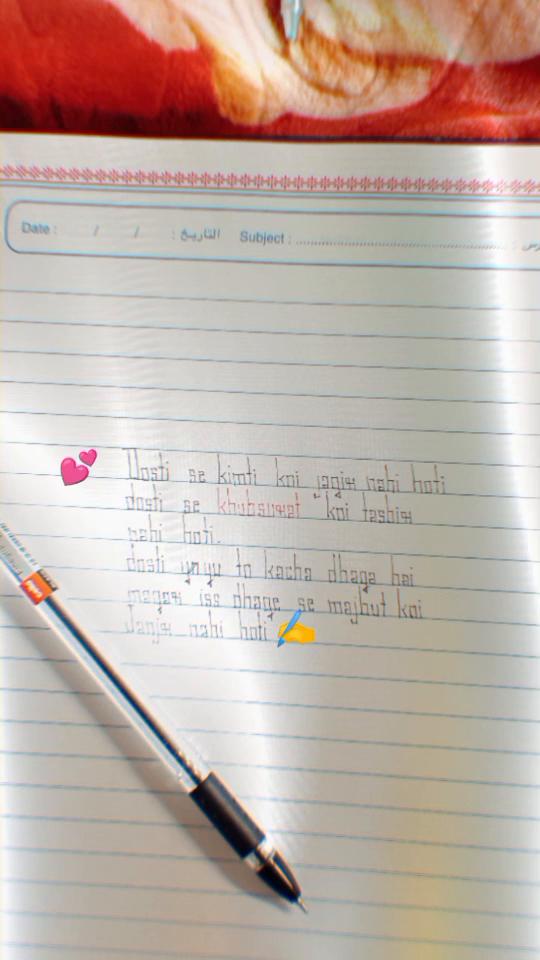 Date : / / : التاريخ Subject :
💕 Dosti se kimti koi janjir nahi hoti
dosti se khubsurat koi tasbir
nahi hoti.
dosti yuyu to kacha dhaga hai
magar iss dhage se majbut koi
Janjir nahi hoti ✍️